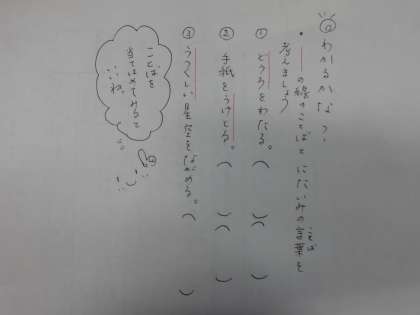 わかるかな？
・＿＿の線のことばとにたいみの言葉を
考えましょう
①どうろをわたる。（　）（　）
②手紙をうけとる。（　）（　）
③うつくしい星空をながめる。（　）
ことばを
当てはめてみると
いいね。